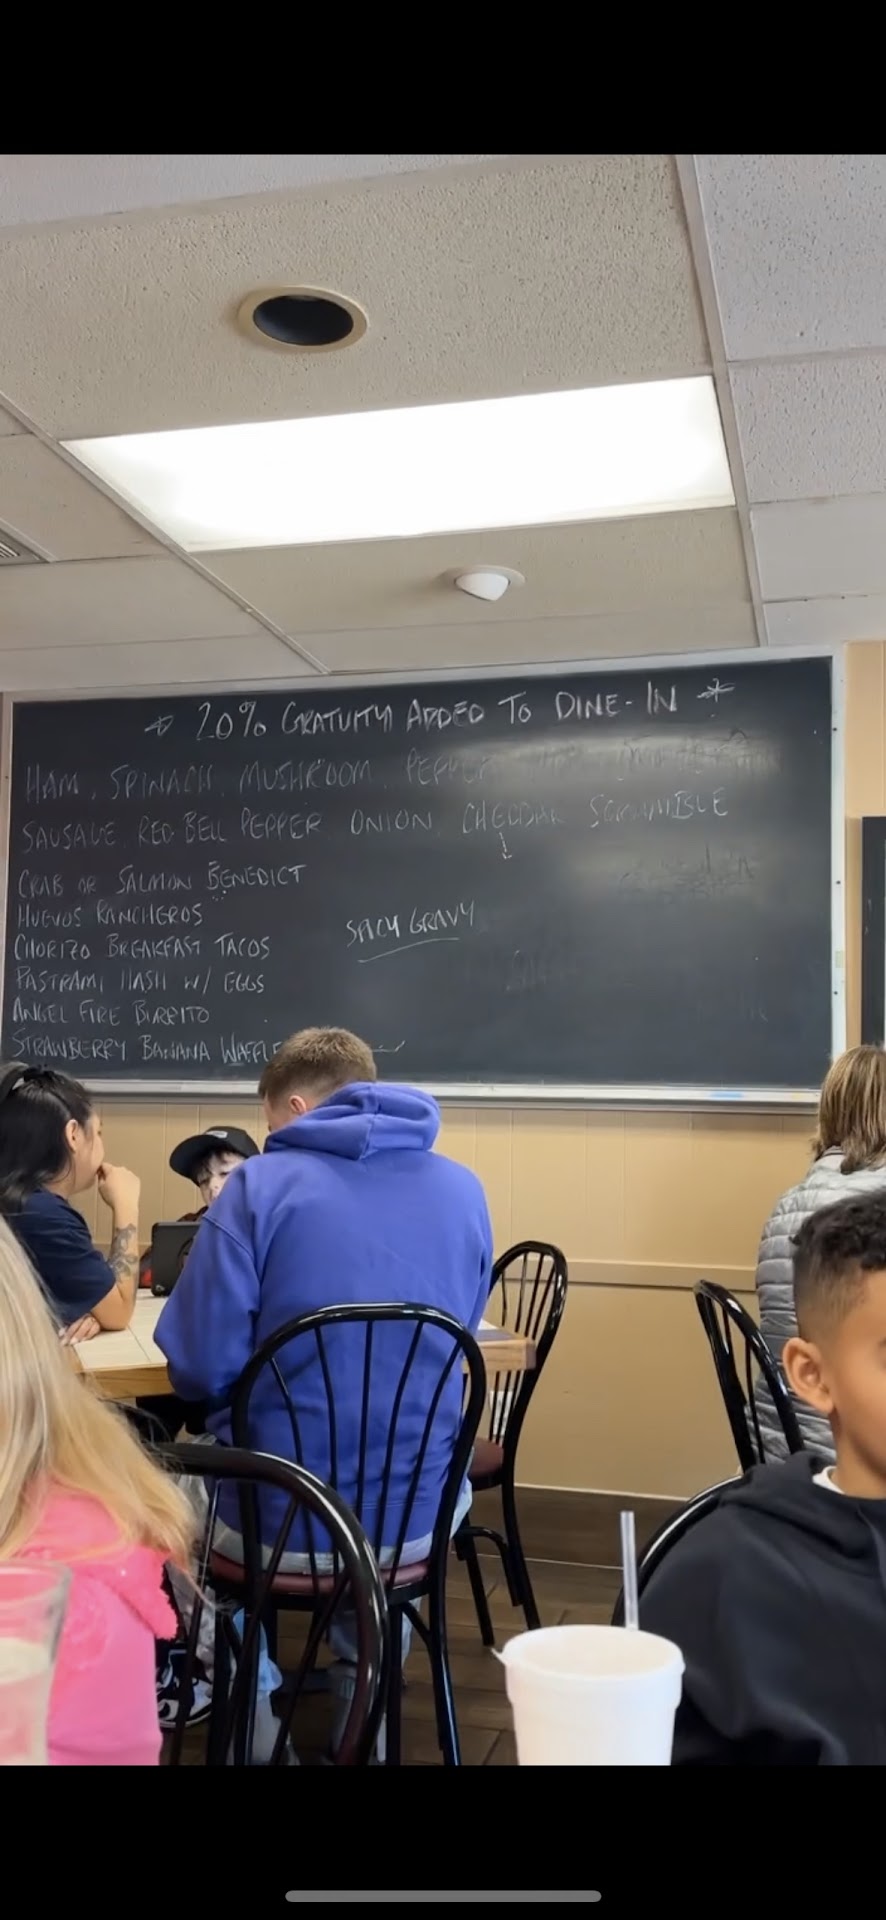 * 20% GRATUITY ADDED TO DINE-IN *
HAM, SPINACH, MUSHROOM, PEPPER
SAUSAGE, RED BELL PEPPER, ONION, CHEDDAR SCRAMBLE
CRAB OR SALMON BENEDICT
HUEVOS RANCHEROS
CHORIZO BREAKFAST TACOS
PASTRAMI HASH W/ EGGS
ANGEL FIRE BURRITO
STRAWBERRY BANANA WAFFLE
SPICY GRAVY